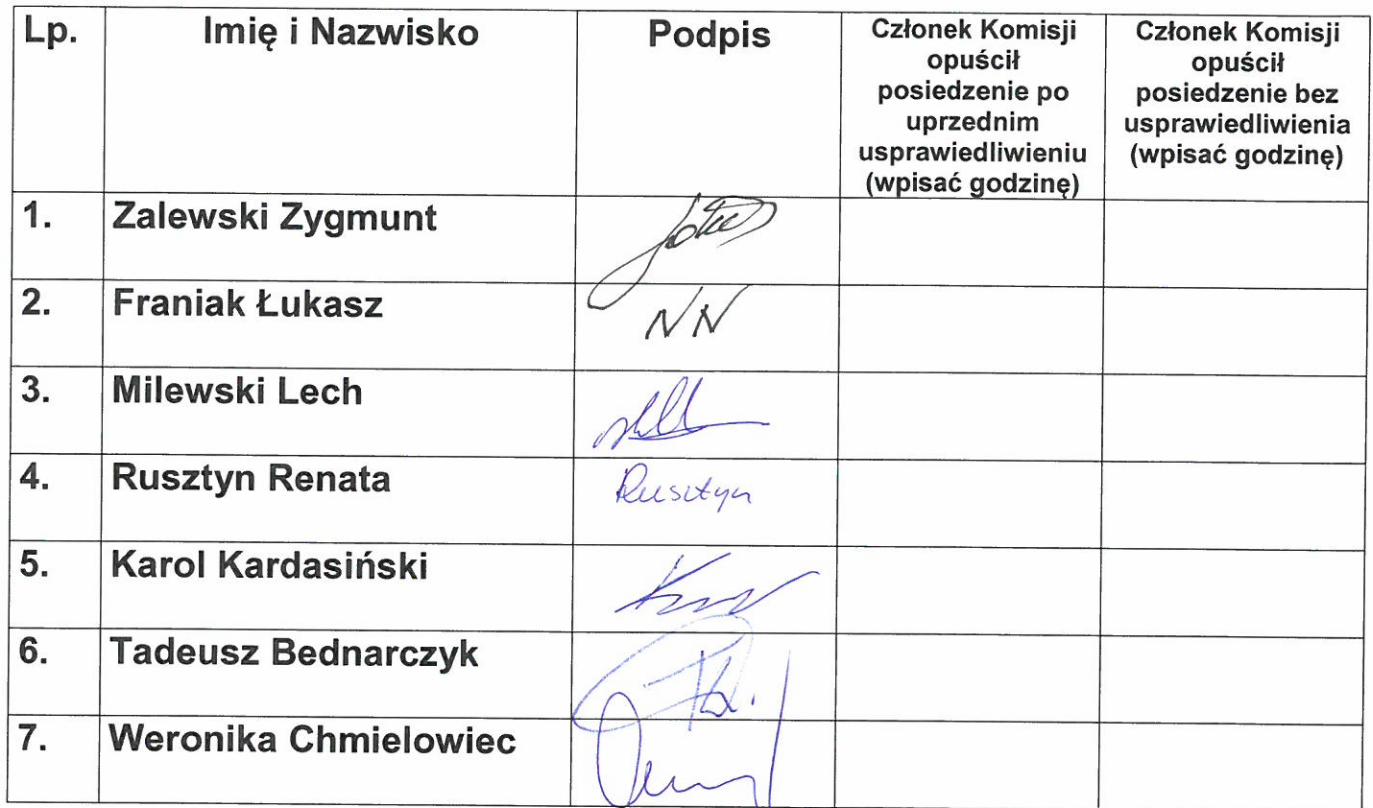 Lp.
Imię i Nazwisko
Podpis
Członek Komisji
opuścił
posiedzenie po
uprzednim
usprawiedliwieniu
(wpisać godzinę)
Członek Komisji
opuścił
posiedzenie bez
usprawiedliwienia
(wpisać godzinę)
1. Zalewski Zygmunt
2. Franiak Łukasz NN
3. Milewski Lech
4. Rusztyn Renata Rusztyn
5. Karol Kardasiński
6. Tadeusz Bednarczyk
7. Weronika Chmielowiec